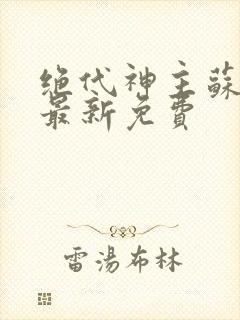 绝代神主蘇
最新免費
雷湯布林